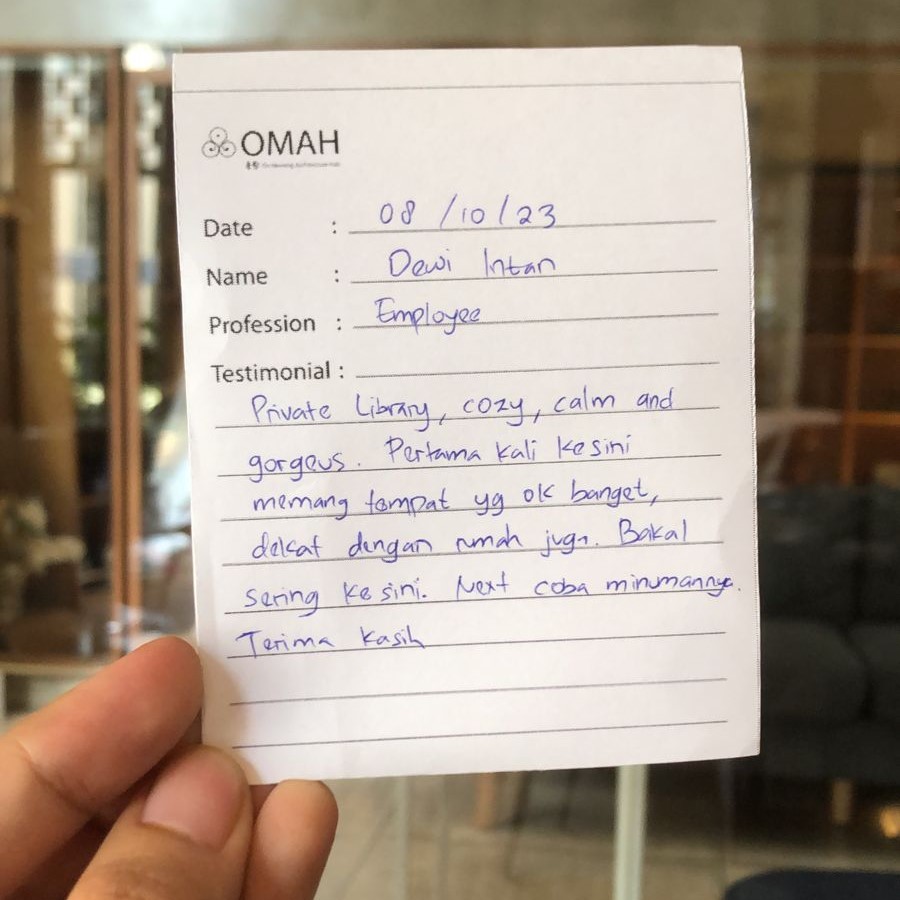 OMAH
Date : 08/10/23
Name : Dewi Intan
Profession : Employee
Testimonial :
Private Library, cozy, calm and
gorgeus. Pertama kali kesini
memang tempat yg ok banget,
dekat dengan rumah juga. Bakal
sering kesini. Next coba minumannya.
Terima kasih